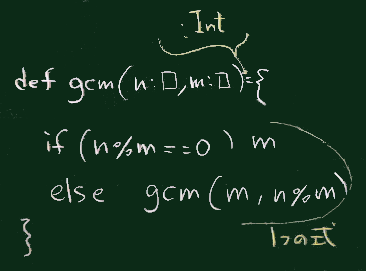 :Int
def gcm(n:□,m:□)={
if (n%m==0) m
else gcm(m, n%m)
}
1つの式